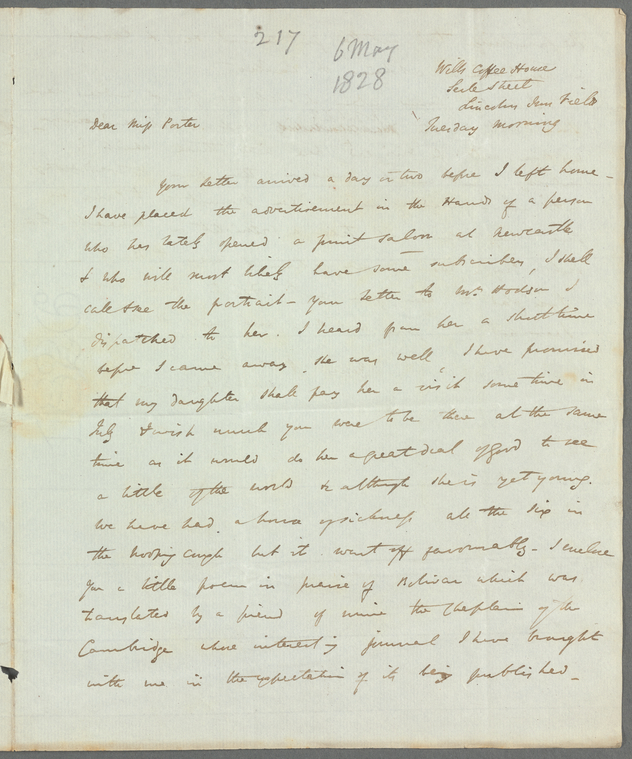 217
6 May
1828
Wills Coffee House
Serle Street
Lincolns Inn Fields
Tuesday Morning
Dear Miss Porter
Your letter arrived a day or two before I left home -
I have placed the advertisement in the Hands of a person
who has lately opened a print saloon at Newcastle
& who will most likely have some subscribers, I shall
call & see the portrait - your letter to Mrs. Hodson I
dispatched to her. I heard from her a short time
before I came away, she was well, I have promised
that my daughter shall pay her a visit some time in
July & wish much you were to be there at the same
time as it would do her a great deal of good to see
a little of the world & although she is yet young.
We have had a house of sickness all the six in
the hooping cough but it went off favourably - I enclose
you a little poem in praise of Bolivar which was
translated by a friend of mine the Chaplain of the
Cambridge whose interesting journal I have brought
with me in the expectation of its being published -